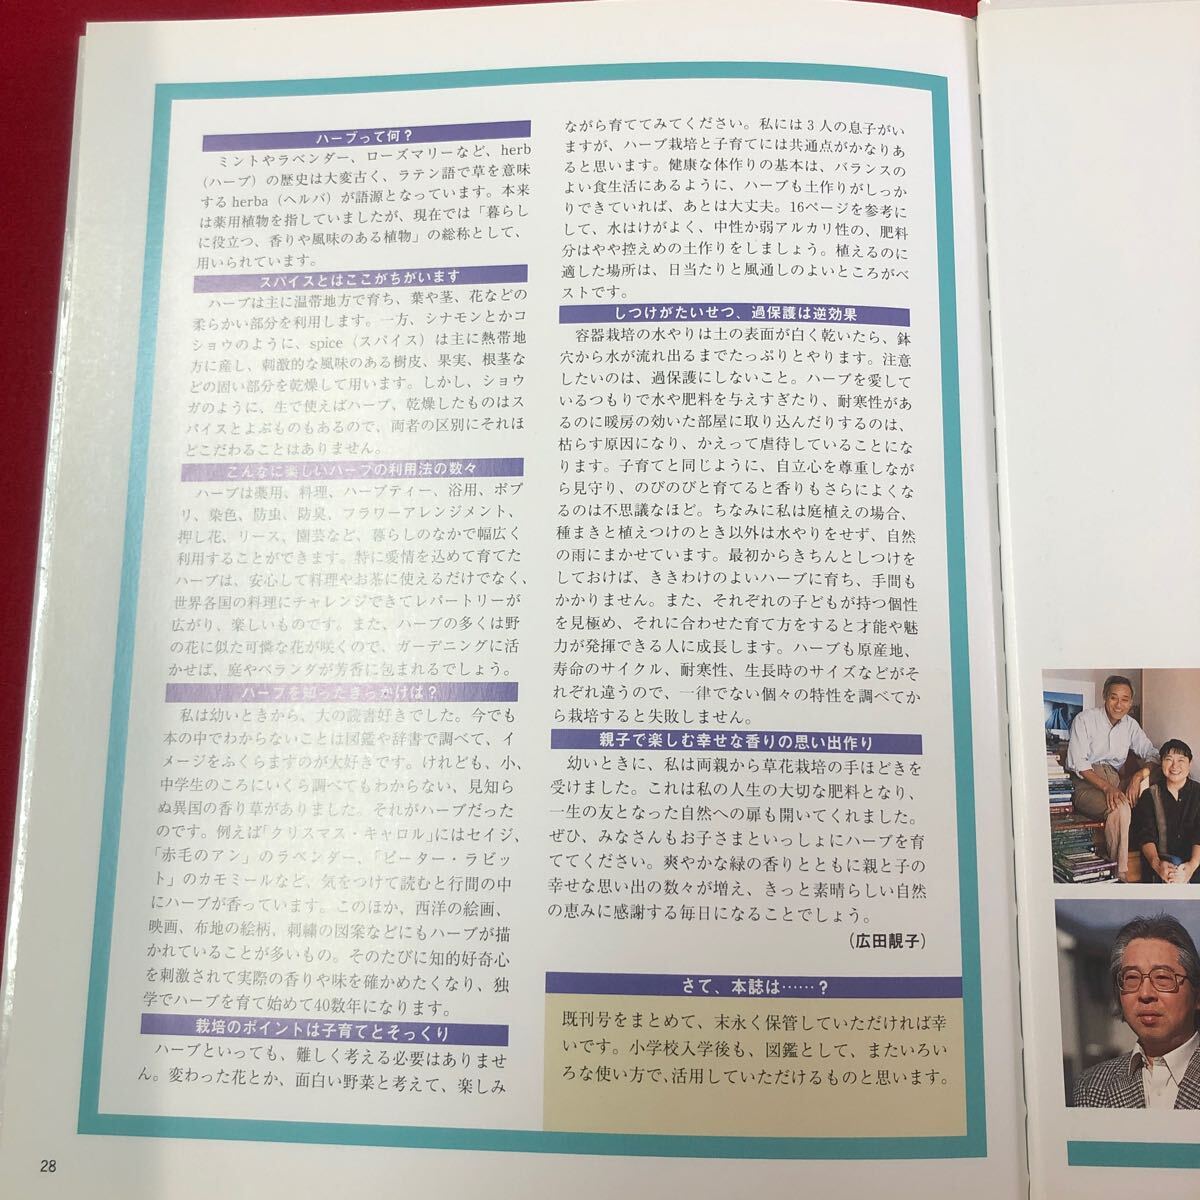 ハーブって何？
ミントやラベンダー、ローズマリーなど、herb
（ハーブ）の歴史は大変古く、ラテン語で草を意味
する herba（ヘルバ）が語源となっています。本来
は薬用植物を指していましたが、現在では「暮らし
に役立つ、香りや風味のある植物」の総称として、
用いられています。
スパイスとはここがちがいます
ハーブは主に温帯地方で育ち、葉や茎、花などの
柔らかい部分を利用します。一方、シナモンとかコ
ショウのように、spice（スパイス）は主に熱帯地
方に産し、刺激的な風味のある樹皮、果実、根茎な
どの固い部分を乾燥して用います。しかし、ショウ
ガのように、生で使えばハーブ、乾燥したものはス
パイスとよぶものもあるので、両者の区別にそれほ
どこだわることはありません。
こんなに楽しいハーブの利用法の数々
ハーブは薬用、料理、ハーブティー、浴用、ポプ
リ、染色、防虫、防臭、フラワーアレンジメント、
押し花、リース、園芸など、暮らしのなかで幅広く
利用することができます。特に愛情を込めて育てた
ハーブは、安心して料理やお茶に使えるだけでなく、
世界各国の料理にチャレンジできてレパートリーが
広がり、楽しいものです。また、ハーブの多くは野
の花に似た可憐な花が咲くので、ガーデニングに活
かせば、庭やベランダが芳香に包まれるでしょう。
ハーブを知ったきっかけは？
私は幼いときから、大の読書好きでした。今でも
本の中でわからないことは図鑑や辞書で調べて、イ
メージをふくらますのが大好きです。けれども、小、
中学生のころにいくら調べてもわからない、見知ら
ぬ異国の香り草がありました。それがハーブだった
のです。例えば「クリスマス・キャロル」にはセイジ、
「赤毛のアン」のラベンダー、「ピーター・ラビッ
ト」のカモミールなど、気をつけて読むと行間の中
にハーブが香っています。このほか、西洋の絵画、
映画、布地の絵柄、刺繍の図案などにもハーブが描
かれていることが多いもの。そのたびに知的好奇心
を刺激されて実際の香りや味を確かめたくなり、独
学でハーブを育て始めて40数年になります。
栽培のポイントは子育てとそっくり
ハーブといっても、難しく考える必要はありませ
ん。変わった花とか、面白い野菜と考えて、楽しみ
ながら育ててみてください。私には３人の息子がい
ますが、ハーブ栽培と子育てには共通点がかなりあ
ると思います。健康な体作りの基本は、バランスの
よい食生活にあるように、ハーブも土作りがしっか
りできていれば、あとは大丈夫。16ページを参考に
して、水はけがよく、中性か弱アルカリ性の、肥料
分はやや控えめの土作りをしましょう。植えるのに
適した場所は、日当たりと風通しのよいところがベ
ストです。
しつけがたいせつ、過保護は逆効果
容器栽培の水やりは土の表面が白く乾いたら、鉢
穴から水が流れ出るまでたっぷりとやります。注意
したいのは、過保護にしないこと。ハーブを愛して
いるつもりで水や肥料を与えすぎたり、耐寒性があ
るのに暖房の効いた部屋に取り込んだりするのは、
枯らす原因になり、かえって虐待していることにな
ります。子育てと同じように、自立心を尊重しなが
ら見守り、のびのびと育てると香りもさらによくな
るのは不思議なほど。ちなみに私は庭植えの場合、
種まきと植えつけのとき以外は水やりをせず、自然
の雨にまかせています。最初からきちんとしつけを
しておけば、ききわけのよいハーブに育ち、手間も
かかりません。また、それぞれの子どもが持つ個性
を見極め、それに合わせた育て方をすると才能や魅
力が発揮できる人に成長します。ハーブも原産地、
寿命のサイクル、耐寒性、生長時のサイズなどがそ
れぞれ違うので、一律でない個々の特性を調べてか
ら栽培すると失敗しません。
親子で楽しむ幸せな香りの思い出作り
幼いときに、私は両親から草花栽培の手ほどきを
受けました。これは私の人生の大切な肥料となり、
一生の友となった自然への扉も開いてくれました。
ぜひ、みなさんもお子さまといっしょにハーブを育
ててください。爽やかな緑の香りとともに親と子の
幸せな思い出の数々が増え、きっと素晴らしい自然
の恵みに感謝する毎日になることでしょう。
（広田靚子）
さて、本誌は……？
既刊号をまとめて、末永く保管していただければ幸
いです。小学校入学後も、図鑑として、またいろい
ろな使い方で、活用していただけるものと思います。
28